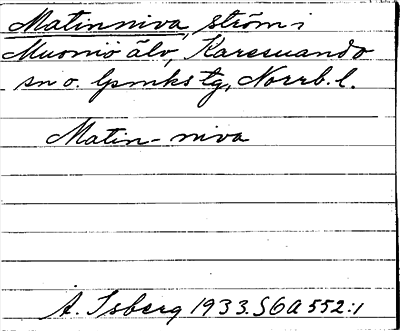 Matinniva, ström i
Muonio älv, Karesuando
sn o. lpmks tg, Norrb. l.
Matin- niva
A. Isberg 1933. S6A 552:1